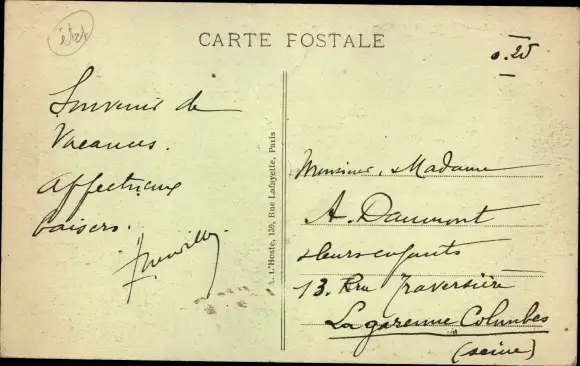 état
CARTE POSTALE
0.25
Souvenir de
Vacances.
Affectueux
baisers.
A. L'Hoste, 139, Rue Lafayette, Paris
Monsieur, & Madame
A. Daumont
& leurs enfants
13. Rue Traversière
La garenne Colombes
(seine)